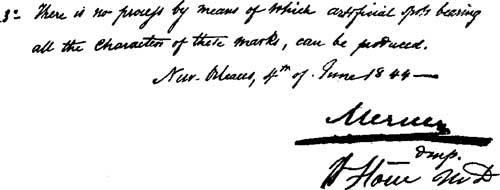 3º There is no process by means of which artificial spots bearing
all the characters of these marks, can be produced.
New-Orleans, 4th of June 1844 —
Mercier
dmp.
Stone M D